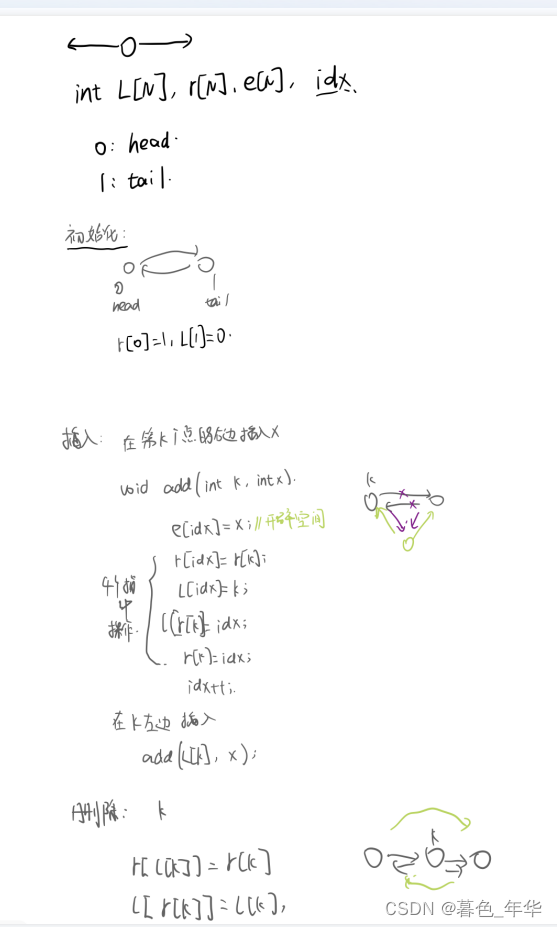 int L[N], r[N], e[N], idx.
0: head.
1: tail.
初始化:
0
head
1
tail
r[0]=1, L[1]=0.
插入: 在第k个点的右边插入x
void add(int k, int x).
k
e[idx]=x; //开辟空间
r[idx]=r[k];
L[idx]=k;
L[r[k]]=idx;
r[k]=idx;
操作.
idx++;
在k左边 插入
add(L[k], x);
删除: k
k
r[L[k]]=r[k]
L[r[k]]=L[k],
CSDN @暮色_年华